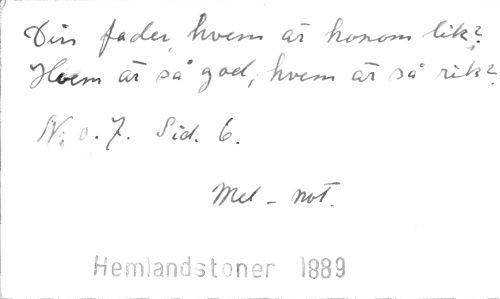 Din fader, hvem är honom lik?
Hvem är så god, hvem är så rik?
N:o. 7. Sid. 6.
Mel - not.
Hemlandstoner 1889